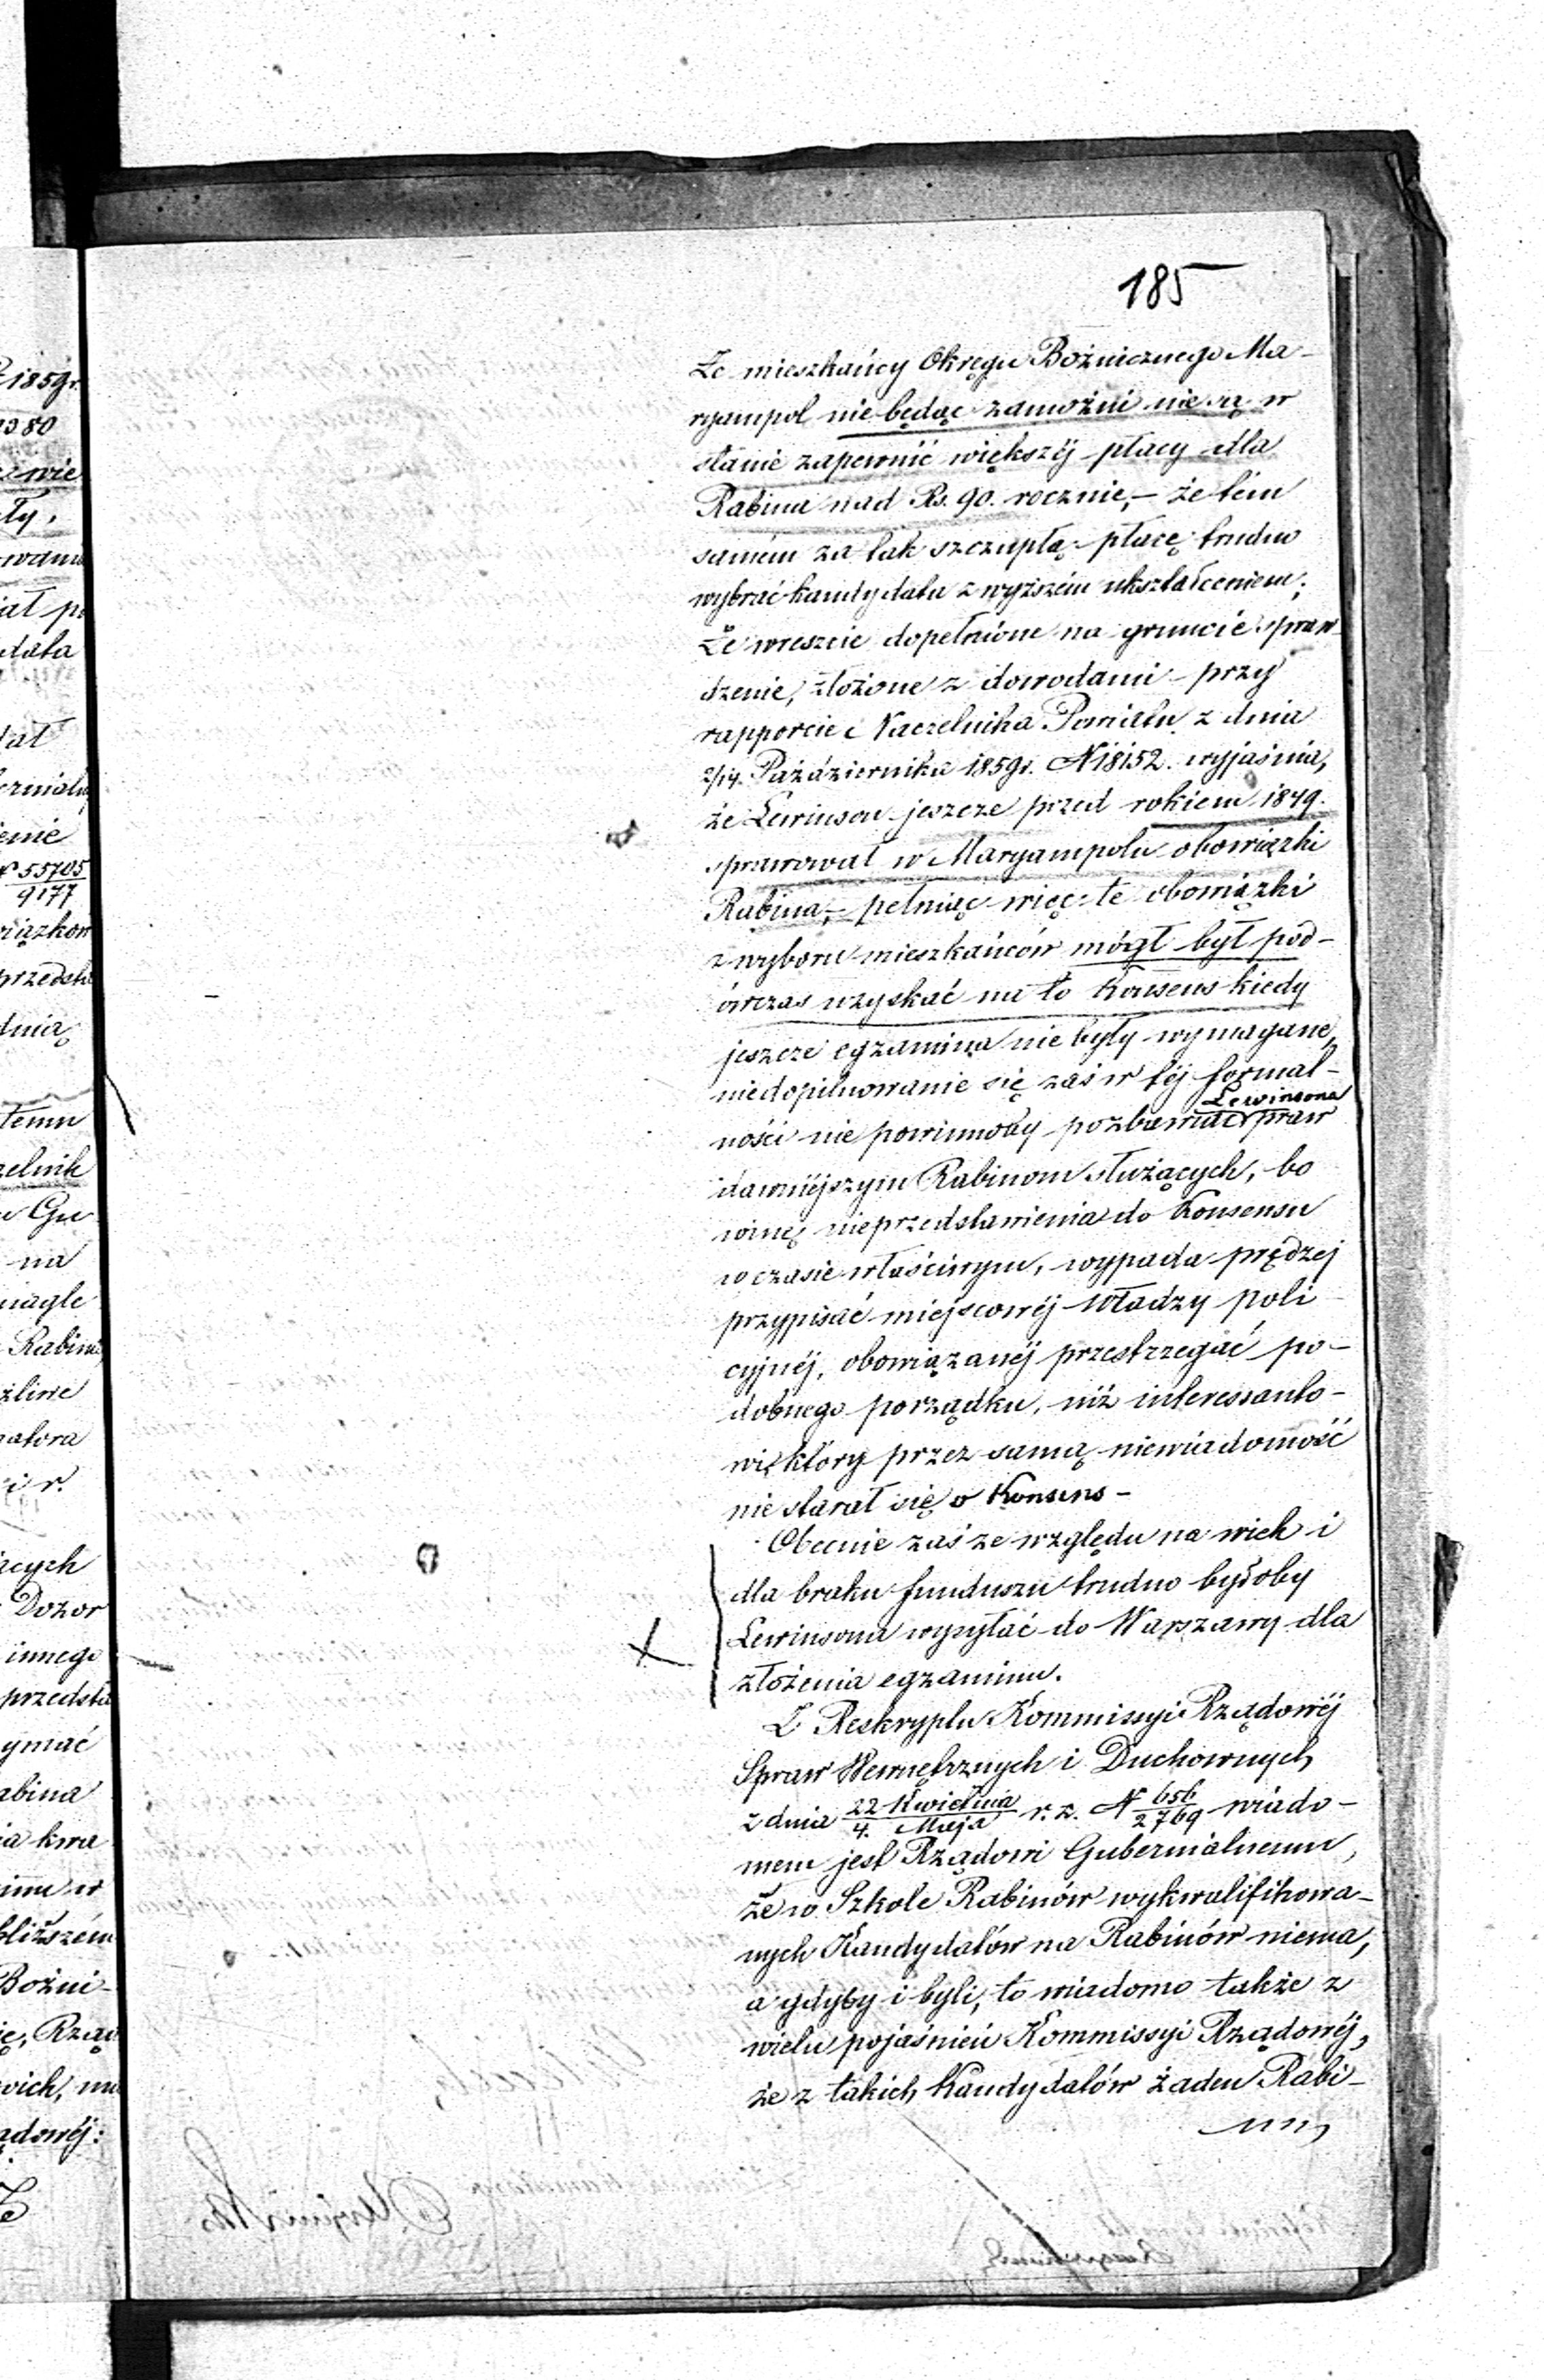 185
Że mieszkańcy Okręgu Bożniczego Ma-
ryampol nie będąc zamożni nie są w
stanie zapewnić większéj płacy dla
Rabina nad Rs. 90. rocznie, – że tém
samém za tak szczupłą płacę trudno
wybrać kandydata z wyższém ukształceniem;
Że wreszcie dopełnione na gruncie spraw-
dzenie, złożone z dowodami przy
rapporcie Naczelnika Powiatu z dnia
2/14. Października 1859r. N 18152. wyjaśnia,
że Lewinson jeszcze przed rokiem 1849.
sprawował w Maryampolu obowiązki
Rabina, – pełniąc więc te obowiązki
z wyboru mieszkańców mógł był pod-
ówczas uzyskać na to Konsens kiedy
jeszcze egzamina nie były wymagane,
niedopilnowanie się zaś w téj formal-
Lewinsona
ności nie powinnoby pozbawiać praw
dawniéjszym Rabinom służących, bo
winę nieprzedstawienia do Konsensu
w czasie właściwym, wypada prędzej
przypisać miejscowéj Władzy poli-
cyjnéj, obowiązanéj przestrzegać po-
dobnego porządku, niż interessanto-
wi który przez samą niewiadomość
nie starał się o Konsens –
Obecnie zaś ze względu na wiek i
dla braku funduszu trudno byłoby
Lewinsona wysyłać do Warszawy dla
złożenia egzaminu.
Z Reskryptu Kommissyi Rządowéj
Spraw Wewnętrznych i Duchownych
z dnia 22 Kwietnia/4. Maja r. z. N 656/2769 wiado-
mem jest Rządowi Gubernialnemu,
że w Szkole Rabinów wykwalifikowa-
nych Kandydatów na Rabinów niema,
a gdyby i byli, to wiadomo także z
wielu pojaśnień Kommissyi Rządowéj,
że z takich Kandydatów żaden Rabi-
nem
1859r.
80
wie
ły,
dała
N 55705
9177
dnią
temu
Gu
na
nagle
żliwe
i r.
Dozor
innego
przedsta
ymać
abina
Bożni-
Rzą
ądowéj:
Że